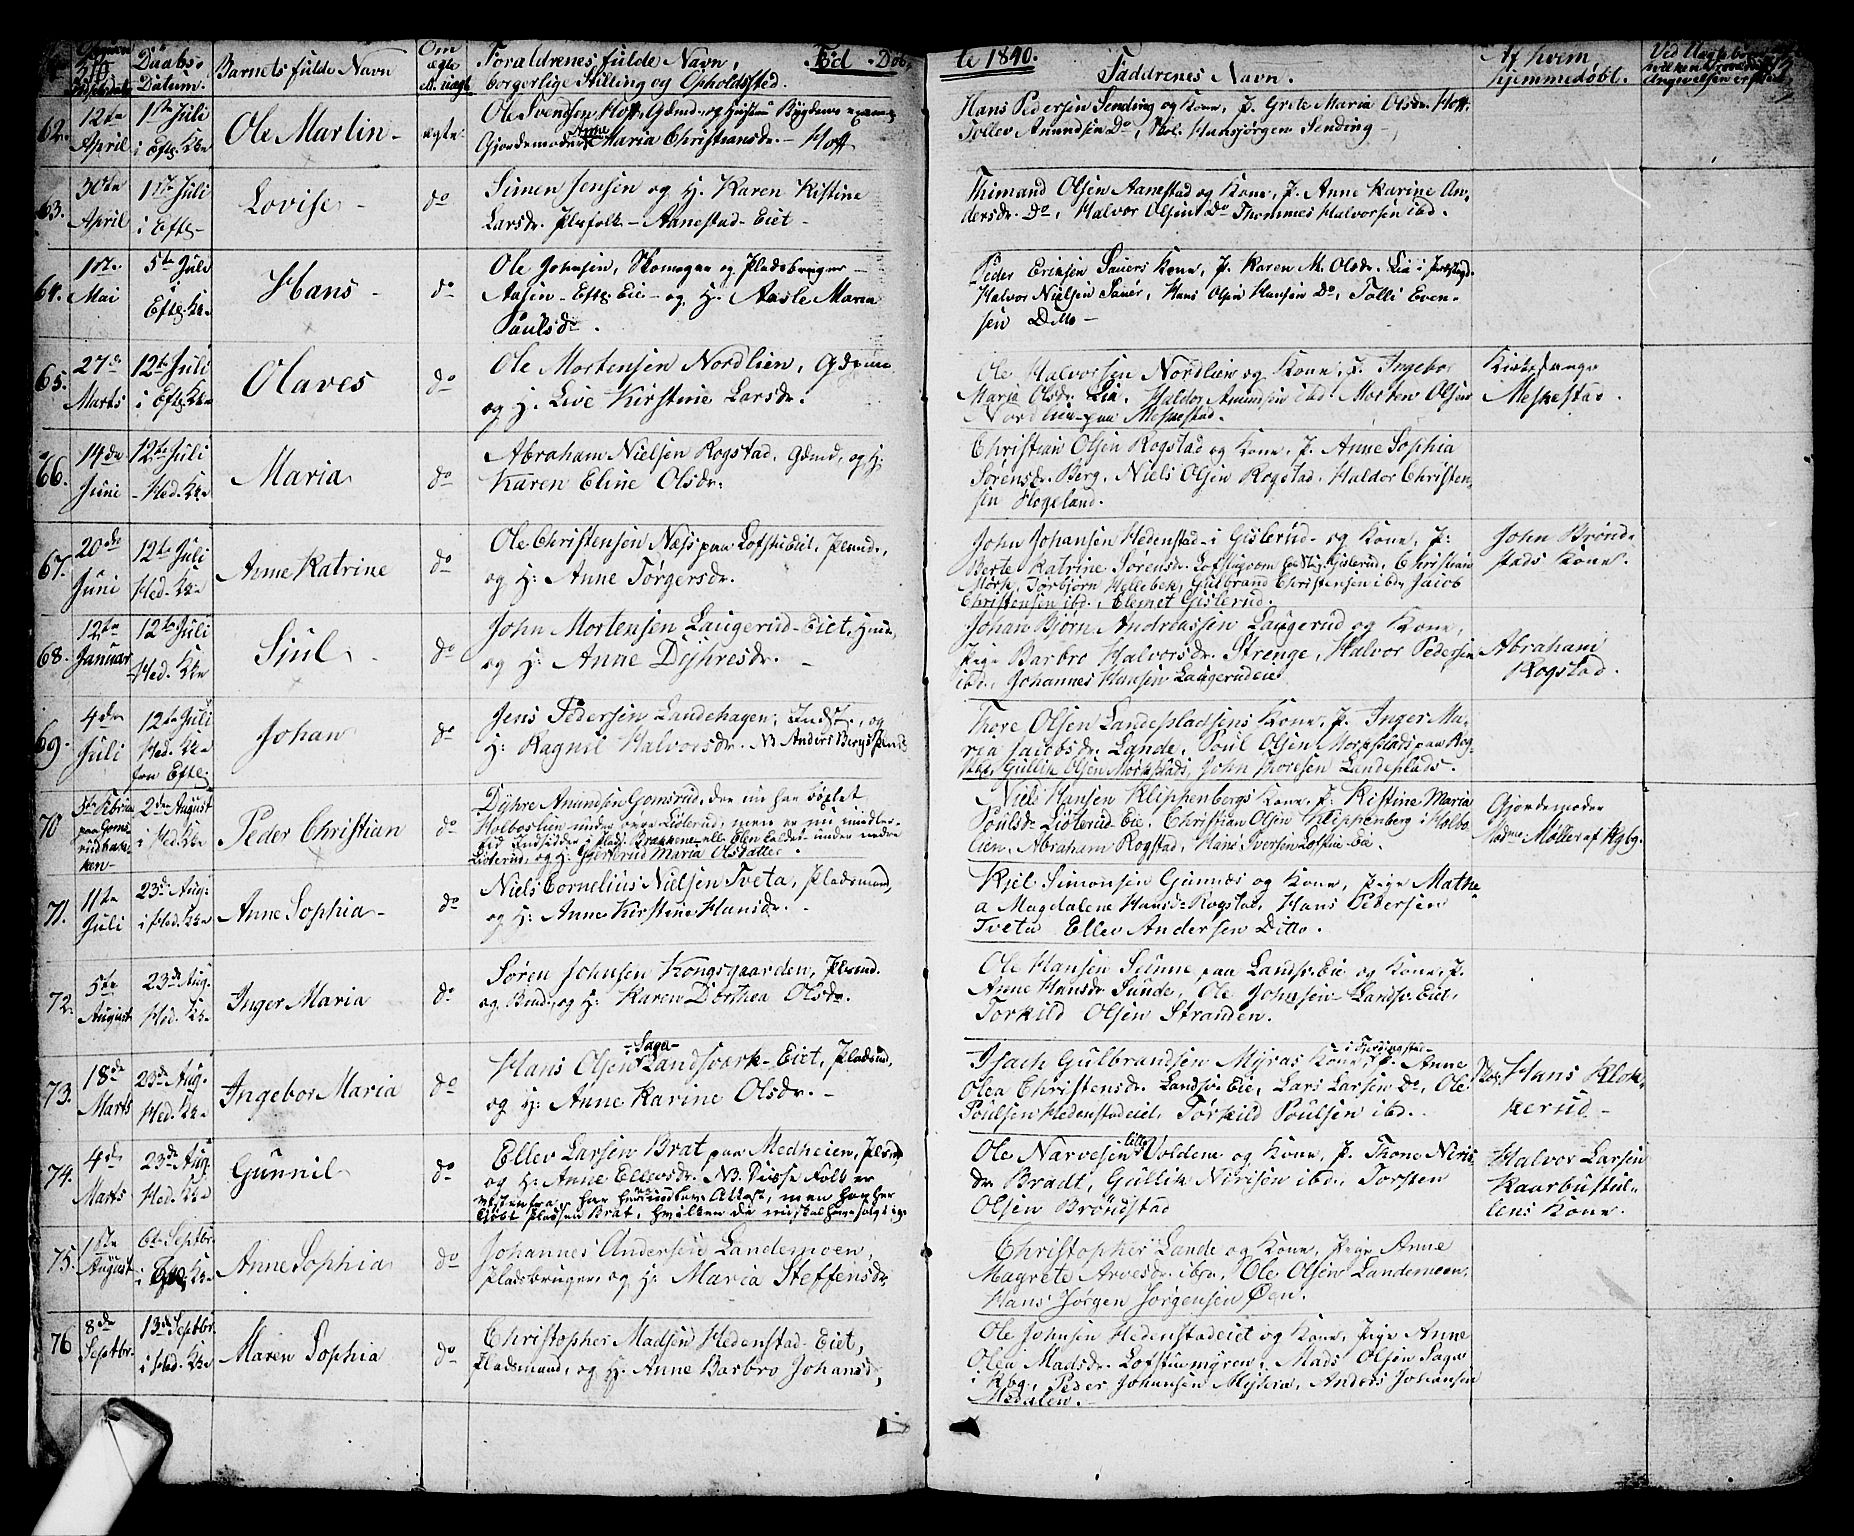 Daabs-
Datum.
Barnets fulde Navn
Om
ægte
el. uægte
Forældrenes fulde Navn,
borgerlige Stilling og Opholdssted.
Fød Døb,
te 1840.
Faddrenes Navn.
Af hvem
hjemmedøbt.
62. 12te April
1ste Juli
i Eftl. Kke
Ole Martin
ægte
Ole Svendsen Hoff, Gdmd, og Hustru
Gjordemoder Anne Maria Christiansdr. Hoff
Hans Pedersen Sending og Kone, P. Grete Maria Olsdr. Hoff.
Tollev Amundsen Do, Hansjørgen Sending
63. 30te April
1ste Juli
i Eftl.
Lovise
do
Simen Jensen og H. Karen Kistine
Larsdr. Plsfolk - Aanestad-Eiet
Thimand Olsen Aanestad og Kone, P. Anne Karine An-
dersdr. Do, Halvor Olsen Do Thommes Halvorsen ibd.
64. 1ste Mai
5te Juli
i
Eftl. Kke
Hans
do
Ole Johnsen, Skomager og Pladsbruger
Aasen - Eftl. Eie - og H. Aasle Maria
Poulsdr.
Peder Eriksen Sauers Kone, P. Karen M. Olsdr. Lia i
Halvor Nielsen Sauer, Hans Olsen Hansen Do, Tolli Even-
sen Ditto
65. 27de Marts
12te Juli
i Eftl. Kke
Olaves
do
Ole Mortensen Nordlien, Gdmd
og H. Live Kirstine Larsdr.
Ole Halvorsen Nordlien og Kone, P. Ingebor
Maria Olsdr. Lia, Haldor Amundsen ibd. Morten Olsen
Nordlien paa Meskestad.
Kirkesanger
Meskestad.
66. 14de Juni
12te Juli
Hed. Kke
Maria
do
Abraham Nielsen Rogstad, Gdmd, og H:
Karen Eline Olsdr.
Christian Olsen Rogstad og Kone, P. Anne Sophia
Sørensdr. Berg, Niels Olsen Rogstad, Haldor Christen-
sen Hogeland.
67. 20de Juni
12te Juli
Hed. Kke
Anne Katrine
do
Ole Christensen Næss paa Lofstueiet, Plmd.,
og H: Anne Torgersdr.
John Johansen Hedenstad i Gislerud og Kone, P:
Berte Katrine Sørensdr. Gislerud, Christian
Mørk, Torbjørn Hellebek, Gulbrand Christensen ibd. Jacob
Christensen ibd., Clemet Gislerud.
John Brønd-
stads Kone.
68. 12te Januar
12te Juli
Hed. Kke
Siul
do
John Mortensen Laugerud-Eiet, Hmd,
og H: Anne Dyhresdr.
Johan Bjørn Andreassen Laugerud og Kone,
Pige Barbro Halvorsdr. Strenge, Halvor Pedersen
ibd., Johannes Hansen Laugerudeie
Abraham
Rogstad.
69. 4de Juli
12te Juli
Hed. Kke
fra Eftl.
Johan
do
Jens Pedersen Landehagen, Indst., og
H: Ragnil Halvorsdr. NB Anders Bergs Plmd
Thore Olsen Landepladsens Kone, P. Inger Ma-
ria Jacobsdr. Lande, Poul Olsen Morkplads paa Rog-
stad, Gullik Olsen Morkplads, John Thoresen Landeplads.
70. 5te Februar
paa Goms-
rudbak-
ken
2den August
i Hed. Kke
Peder Christian
do
Dyhre Amundsen Gomsrud, der nu har
Holboslien under øvre Listerud, men er nu
tid Indsidder i Plads Brækkene under nedre
Listerud, og H: Gjertrud Maria Olsdatter.
Niels Hansen Klippenbergs Kone, P: Kistine Maria
Poulsdr. Listerud-Eie, Christian Olsen Klippenberg i Holbo-
lien, Abraham Rogstad, Hans Iversen Lofstu-Eie.
Gjordemoder
Madme. Møller af Kgbg.
71. 11te Juli
23de Aug:
i Hed. Kke
Anne Sophia
do
Niels Cornelius Nielsen Tveta, Pladsmand,
og H: Anne Kirstine Hansdr.
Kjel Simonsen Gunnæs og Kone, Pige Mathe
a Magdalene Hansdr. Rogstad, Hans Pedersen
Tveta Ellev Andersen Ditto.
72. 5te August
23de Aug.
Hed. Kke
Inger Maria
do
Søren Johnsen Kongsgaarden, Plsmd.
og Bmd, og H: Karen Dorthea Olsdr.
Ole Hansen Sunne paa Landsv. Eie og Kone, P.
Anne Hansdr. Sunde, Ole Johnsen Landsv. Eiet,
Torkild Olsen Stranden.
73. 18de Marts
23de Aug.
Hed. Kke
Ingebor Maria
do
Hans Olsen Saga-Landsverk-Eiet, Pladsmd,
og H: Anne Karine Olsdr.
Isach Gulbrandsen Myras Kone, P. Anne
Olea Christensdr. Landsv. Eie, Lars Larsen Do, Ole
Poulsen Hedenstadeiet, Torkild Poulsen ibd.
Skol. Hans Klok-
kerud
74. 4de Marts
23de Aug
Hed. Kke
Gunnil
do
Ellev Larsen Brat paa Medheien, Plsmd,
og H: Anne Ellevsdr. NB. Disse Folk er
Vestenfra, har Attest, men har her
kjøbt Pladsen Brat, hvilken de
Ole Narvesen lille Volden og Kone, P. Thone Niris-
dr. Bradt, Gullik Nirisen ibd., Torsten
Olsen Brøndstad
Halvor Larsen
Kaarbustul-
lens Kone.
75. 1ste August
6te Septbr.
i Kke
Anne Sophia
do
Johannes Andersen Landemoen,
Pladsbruger og H: Maria Steffensdr.
Christopher Lande og Kone, Pige Anne
Magrete Arvesdr. ibd., Ole Olsen Landemoen,
Hans Jørgen Jørgensen Øen.
76 8de Septbr.
13de Septbr.
i Hed. Kke
Maren Sophia
do
Christopher Madsen Hedenstad-Eiet,
Pladsmand, og H. Anne Barbro Johansdr,
Ole Johnsen Hedenstadeiet og Kone, Pige Anne
Olea Madsdr. Lofstumyren, Mads Olsen Saga
i Kbg, Peder Johansen Myhra, Anders Johansen
Medalen.